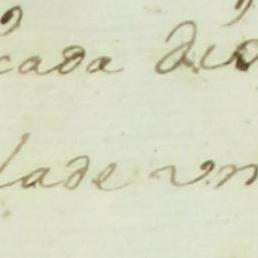 cada dio
lade vn